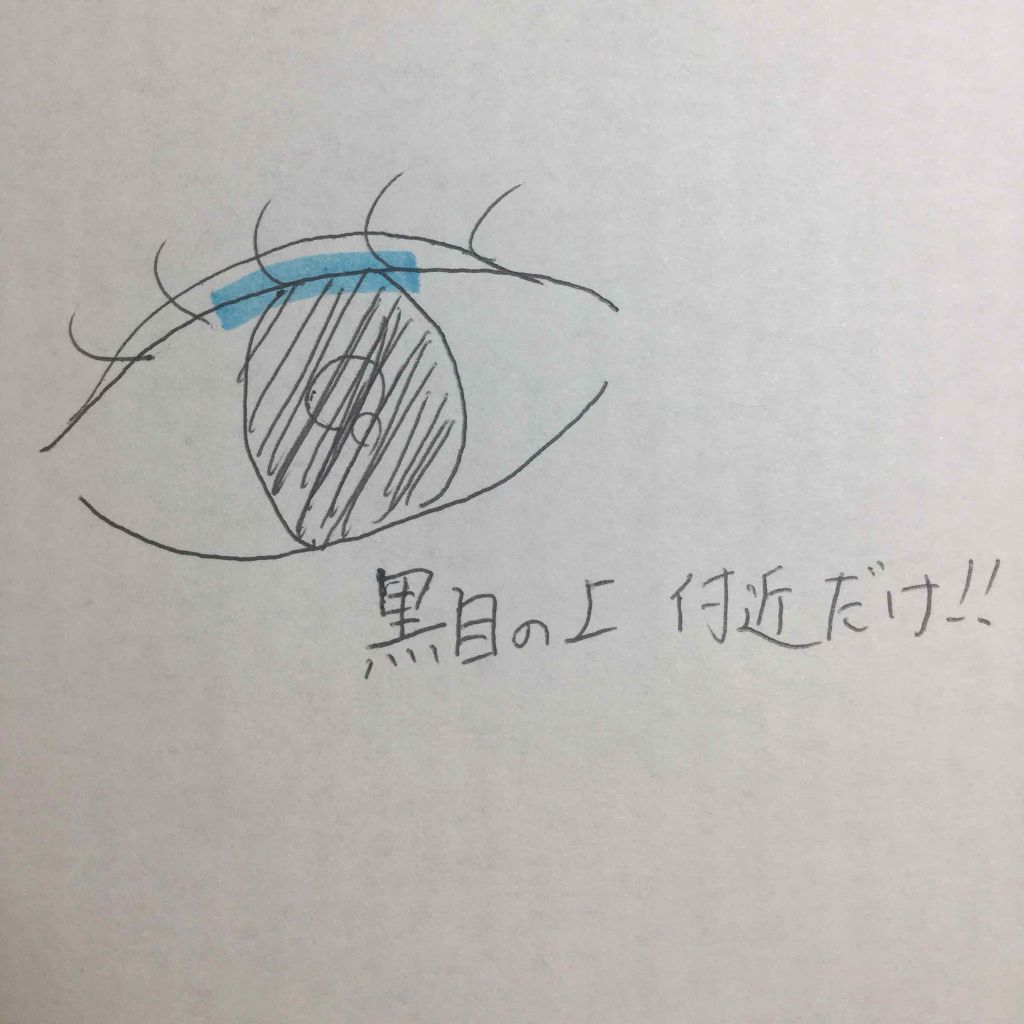 黒目の上 付近だけ!!